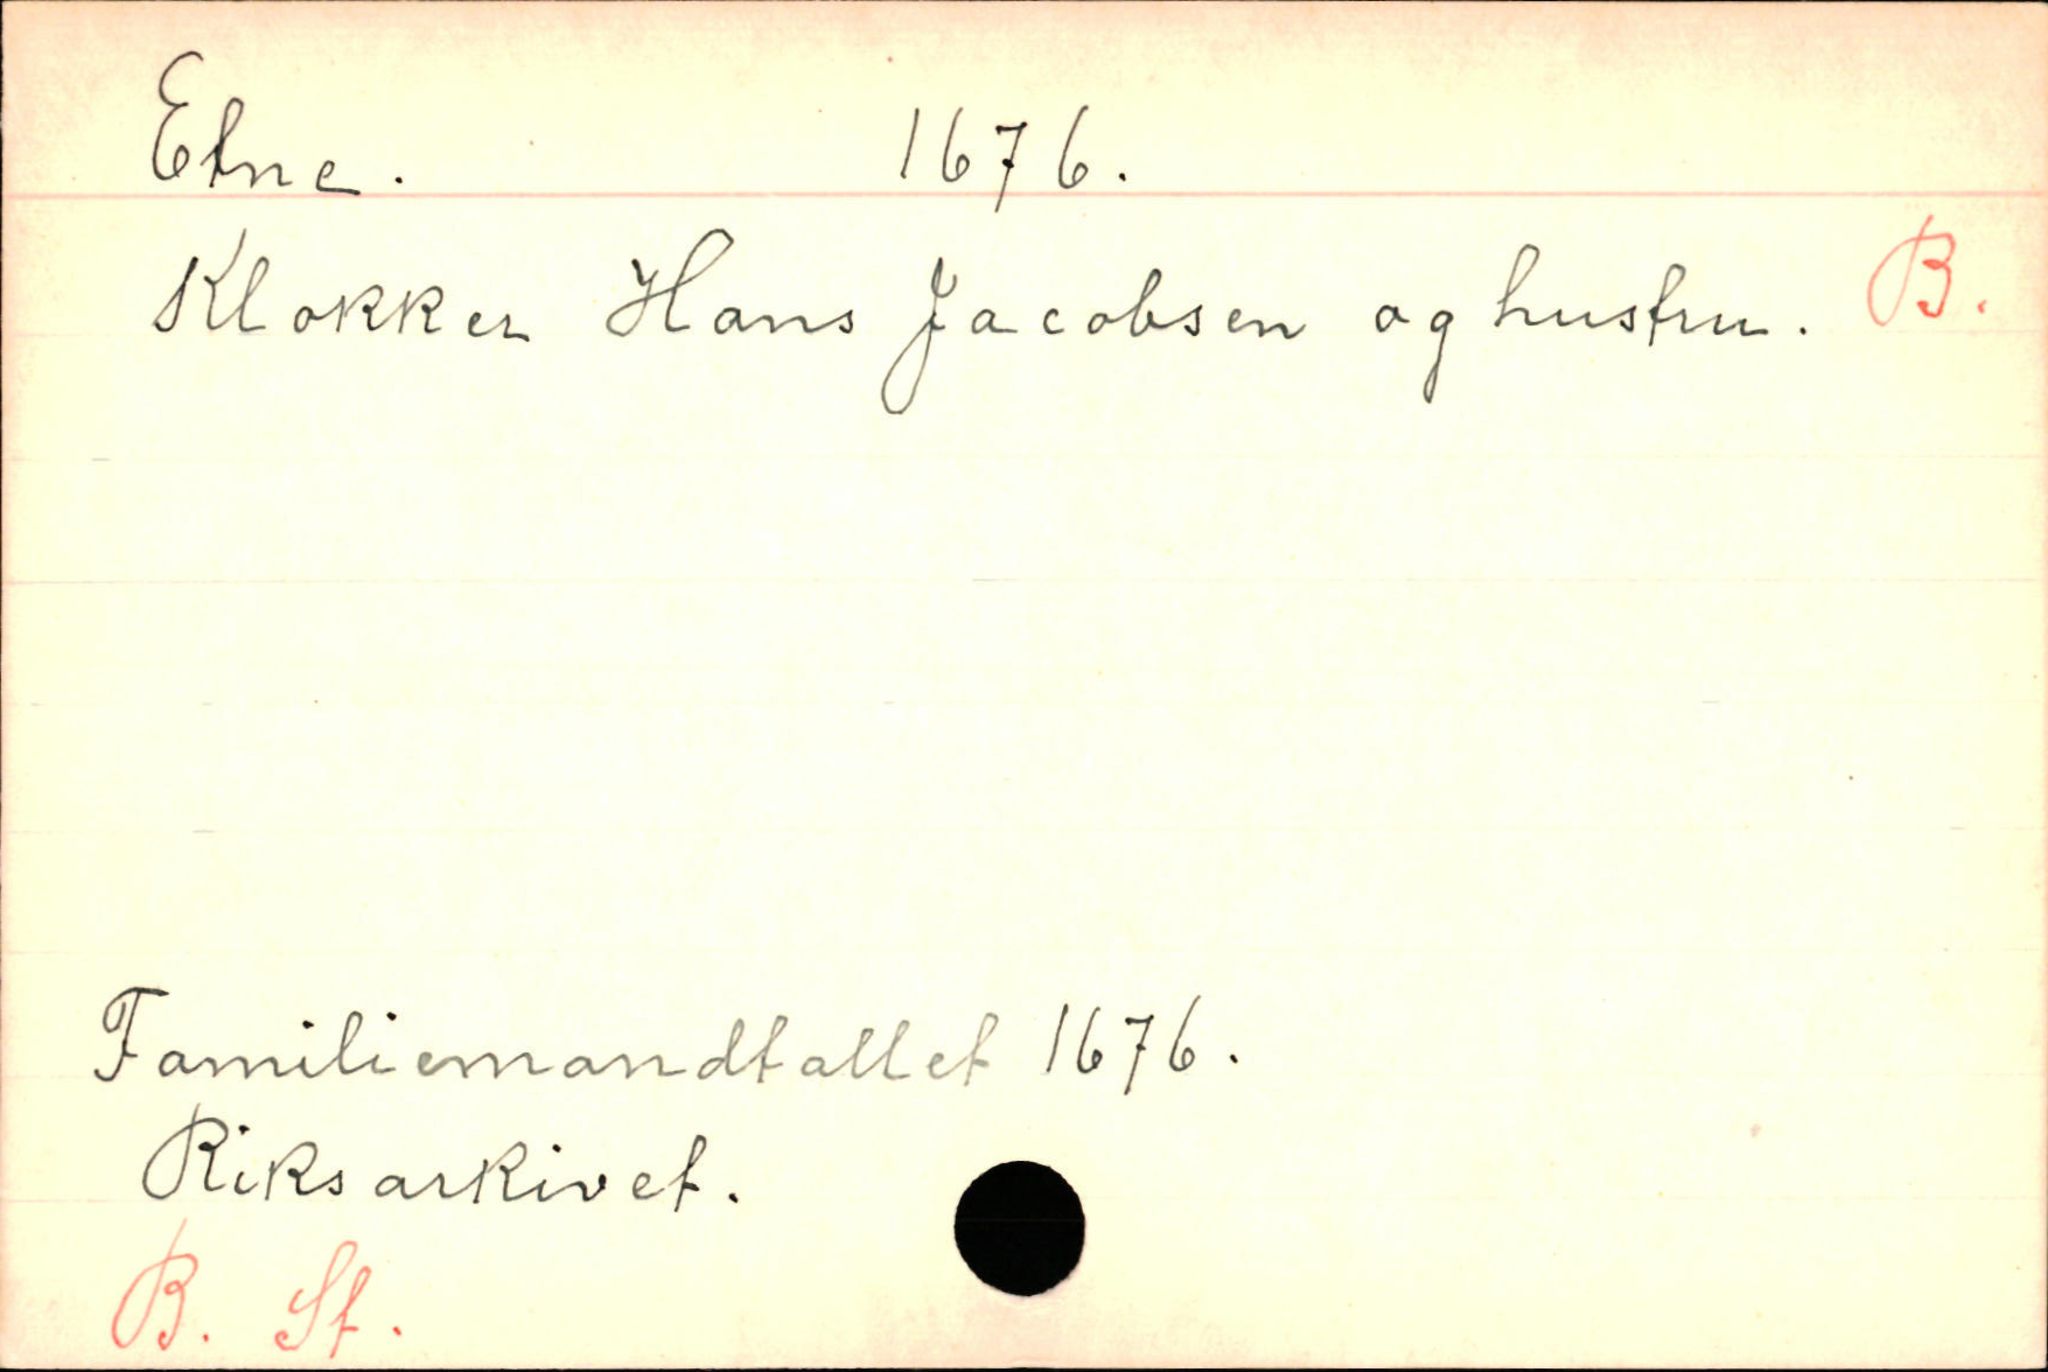 Etne. 1676.
Klokker Hans Jacobsen og hustru. B.
Familiemandtallet 1676.
Riksarkivet.
B. St.